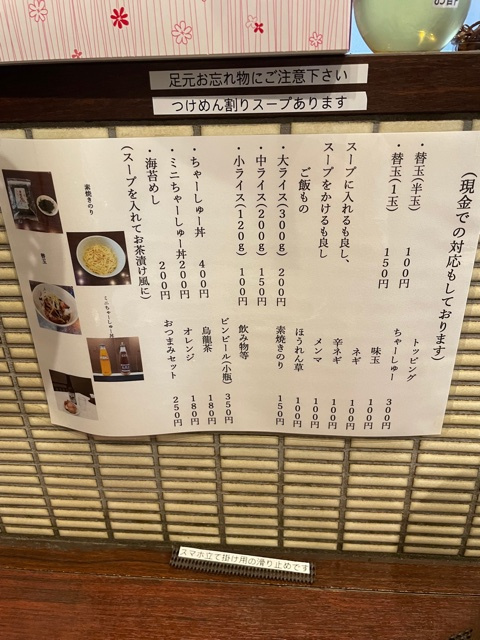 足元お忘れ物にご注意下さい
つけめん割りスープあります
(現金での対応もしております)
・替玉(半玉) 100円
・替玉(1玉) 150円
スープに入れるも良し、
スープをかけるも良し
ご飯もの
・大ライス(300g) 200円
・中ライス(200g) 150円
・小ライス(120g) 100円
・ちゃーしゅー丼 400円
・ミニちゃーしゅー丼200円
・海苔めし 200円
(スープを入れてお茶漬け風に)
トッピング
ちゃーしゅー 300円
味玉 100円
ネギ 100円
辛ネギ 100円
メンマ 100円
ほうれん草 100円
素焼きのり 150円
飲み物等
ビンビール(小瓶) 350円
烏龍茶 180円
オレンジ 180円
おつまみセット 250円
素焼きのり
替玉
ミニちゃーしゅー丼
スマホ立て掛け用の滑り止めです